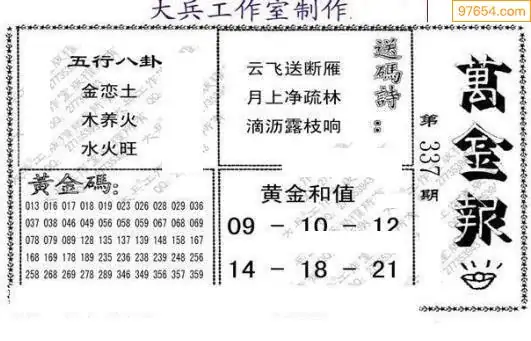 大兵工作室制作
97654.com
五行八卦
金恋土
木养火
水火旺
送碼詩:
云飞送断雁
月上净疏林
滴沥露枝响
萬金報
第337期
黃金碼:
013 016 017 018 019 023 026 028 029 036
037 038 046 049 056 058 059 067 068 069
078 079 089 128 135 137 139 148 158 167
168 169 178 189 235 236 238 239 248 256
258 268 269 278 289 346 349 356 357 359
黄金和值
09 - 10 - 12
14 - 18 - 21